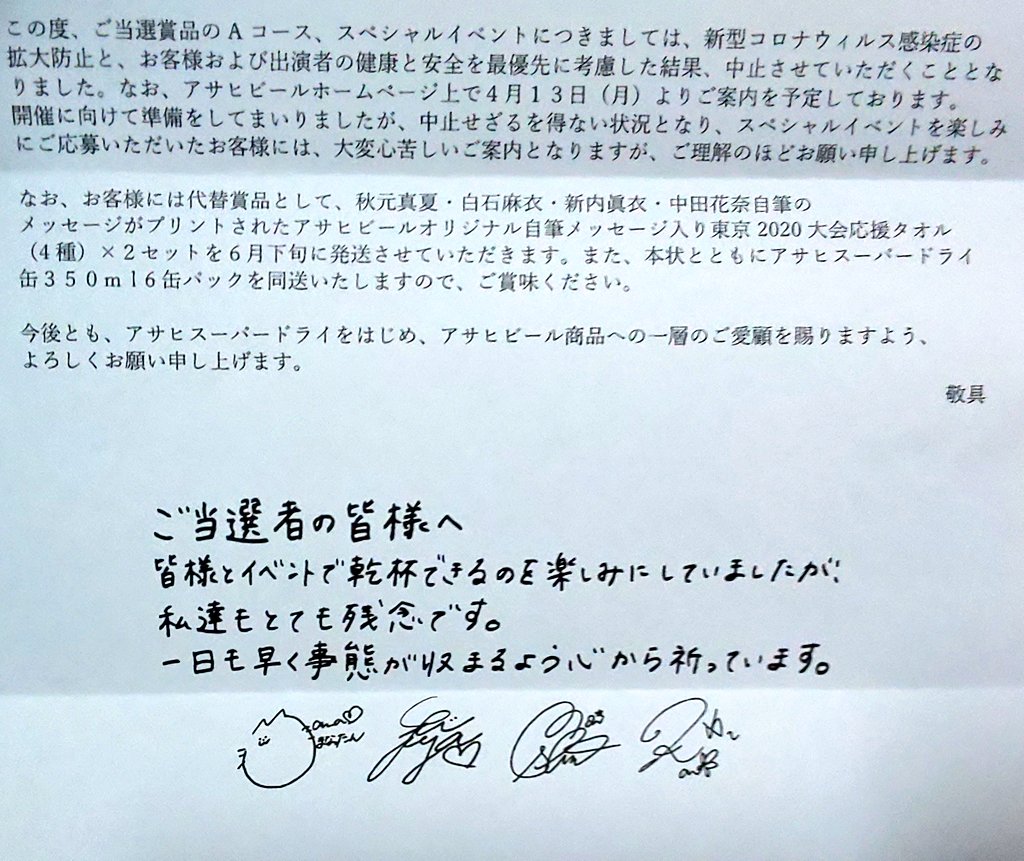 この度、ご当選賞品のAコース、スペシャルイベントにつきましては、新型コロナウィルス感染症の
拡大防止と、お客様および出演者の健康と安全を最優先に考慮した結果、中止させていただくこととな
りました。なお、アサヒビールホームページ上で4月13日（月）よりご案内を予定しております。
開催に向けて準備をしてまいりましたが、中止せざるを得ない状況となり、スペシャルイベントを楽しみ
にご応募いただいたお客様には、大変心苦しいご案内となりますが、ご理解のほどお願い申し上げます。
なお、お客様には代替賞品として、秋元真夏・白石麻衣・新内眞衣・中田花奈自筆の
メッセージがプリントされたアサヒビールオリジナル自筆メッセージ入り東京2020大会応援タオル
（4種）×2セットを6月下旬に発送させていただきます。また、本状とともにアサヒスーパードライ
缶350ml6缶パックを同送いたしますので、ご賞味ください。
今後とも、アサヒスーパードライをはじめ、アサヒビール商品への一層のご愛顧を賜りますよう、
よろしくお願い申し上げます。
敬具
ご当選者の皆様へ
皆様とイベントで乾杯できるのを楽しみにしていましたが、
私達もとても残念です。
一日も早く事態が収まるよう心から祈っています。